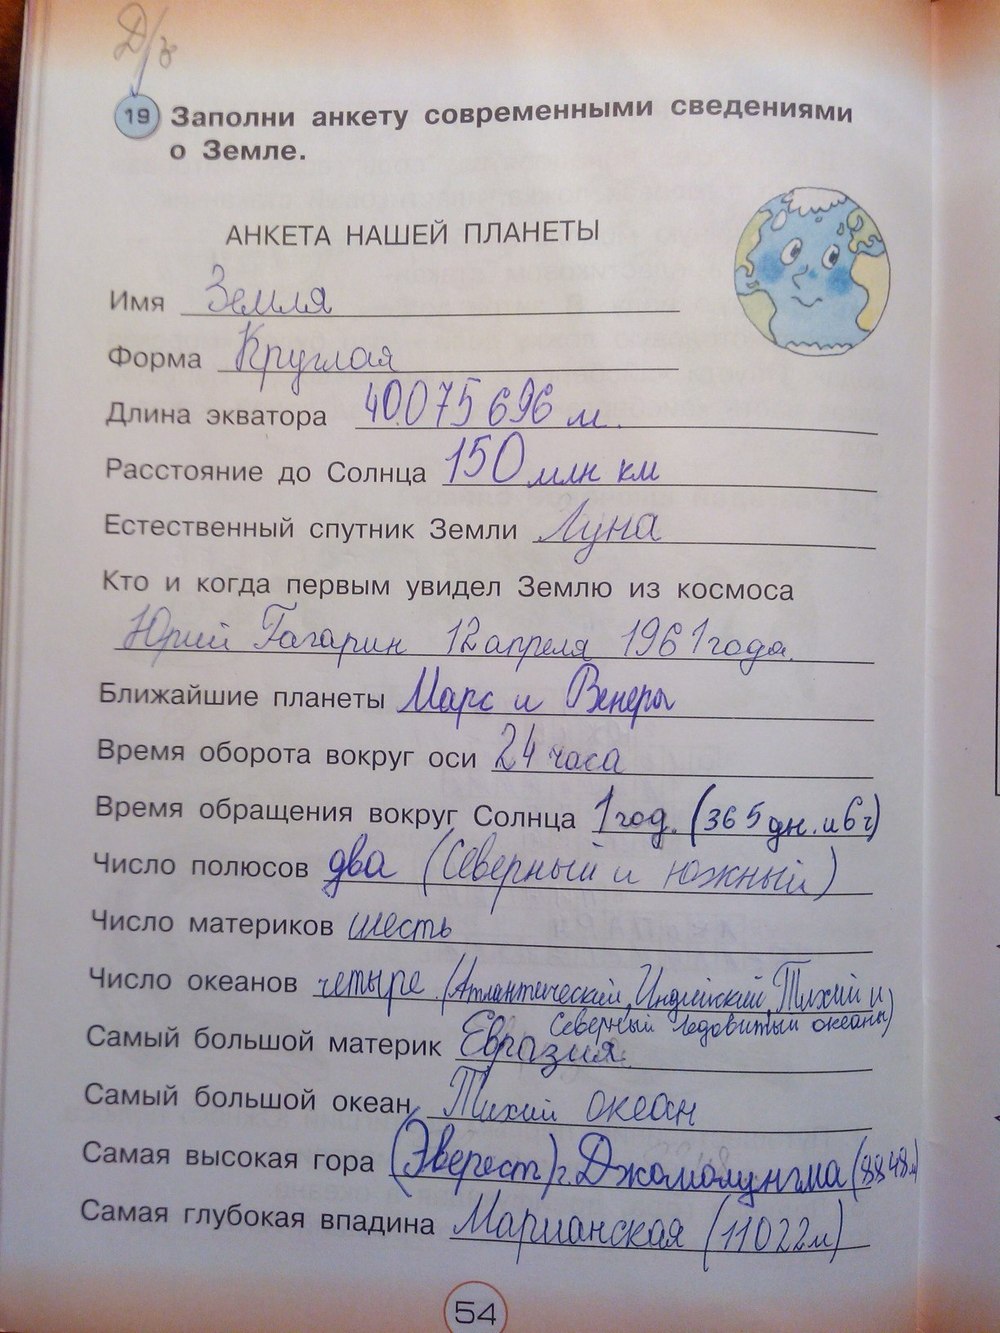 Д/з
19 Заполни анкету современными сведениями
о Земле.
АНКЕТА НАШЕЙ ПЛАНЕТЫ
Имя Земля
Форма Круглая
Длина экватора 40.075 696 м.
Расстояние до Солнца 150 млн км
Естественный спутник Земли Луна
Кто и когда первым увидел Землю из космоса
Юрий Гагарин 12 апреля 1961 года.
Ближайшие планеты Марс и Венеры
Время оборота вокруг оси 24 часа
Время обращения вокруг Солнца 1 год. (365 дн. и 6 ч)
Число полюсов два (Северный и южный)
Число материков шесть
Число океанов четыре (Атлантический, Индийский, Тихий и
Северный Ледовитый океаны)
Самый большой материк Евразия.
Самый большой океан Тихий океан
Самая высокая гора (Эверест) г. Джомолунгма (8848м)
Самая глубокая впадина Марианская (11022м)
54